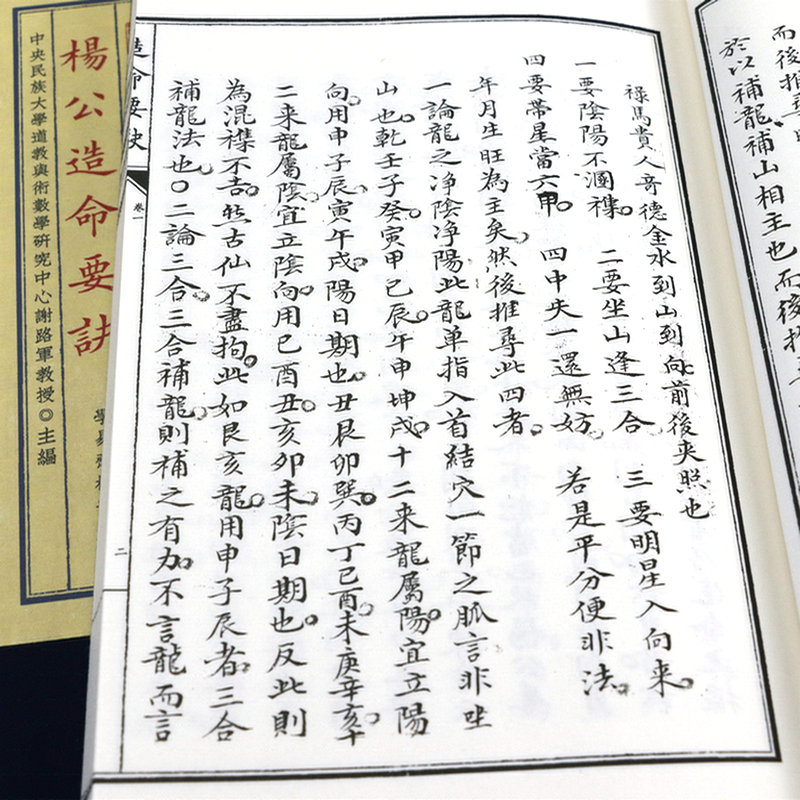 而後推
於以補龍補山相主也而後推
祿馬貴人奇德金水到山到向。前後夾照也
一要陰陽不溷襍。 二要坐山逢三合。 三要明星入向来。
四要帶星當六甲。 四中失一還無妨。 若是平分便非法。
年月生旺為主矣。然後推尋此四者。
一論龍之净陰净陽此龍单指入首結穴一節之脈言非坐
山也。乾壬子癸。寅甲巳辰。午申坤戌。十二来龍屬陽。宜立陽
向。用申子辰。寅午戌。陽日期也。丑艮卯巽。丙丁巳酉。未庚辛亥。十
二来龍屬陰。宜立陰向。用巳酉丑。亥卯未。陰日期也。反此則
為混襍不吉。然古仙不盡拘。此如艮亥龍。用申子辰者。三合
補龍法也。〇二論三合。三合補龍。則補之有力。不言龍而言
造命要訣
卷一
二
楊公造命要訣
中央民族大學道教與術數學研究中心謝路軍教授◎主編